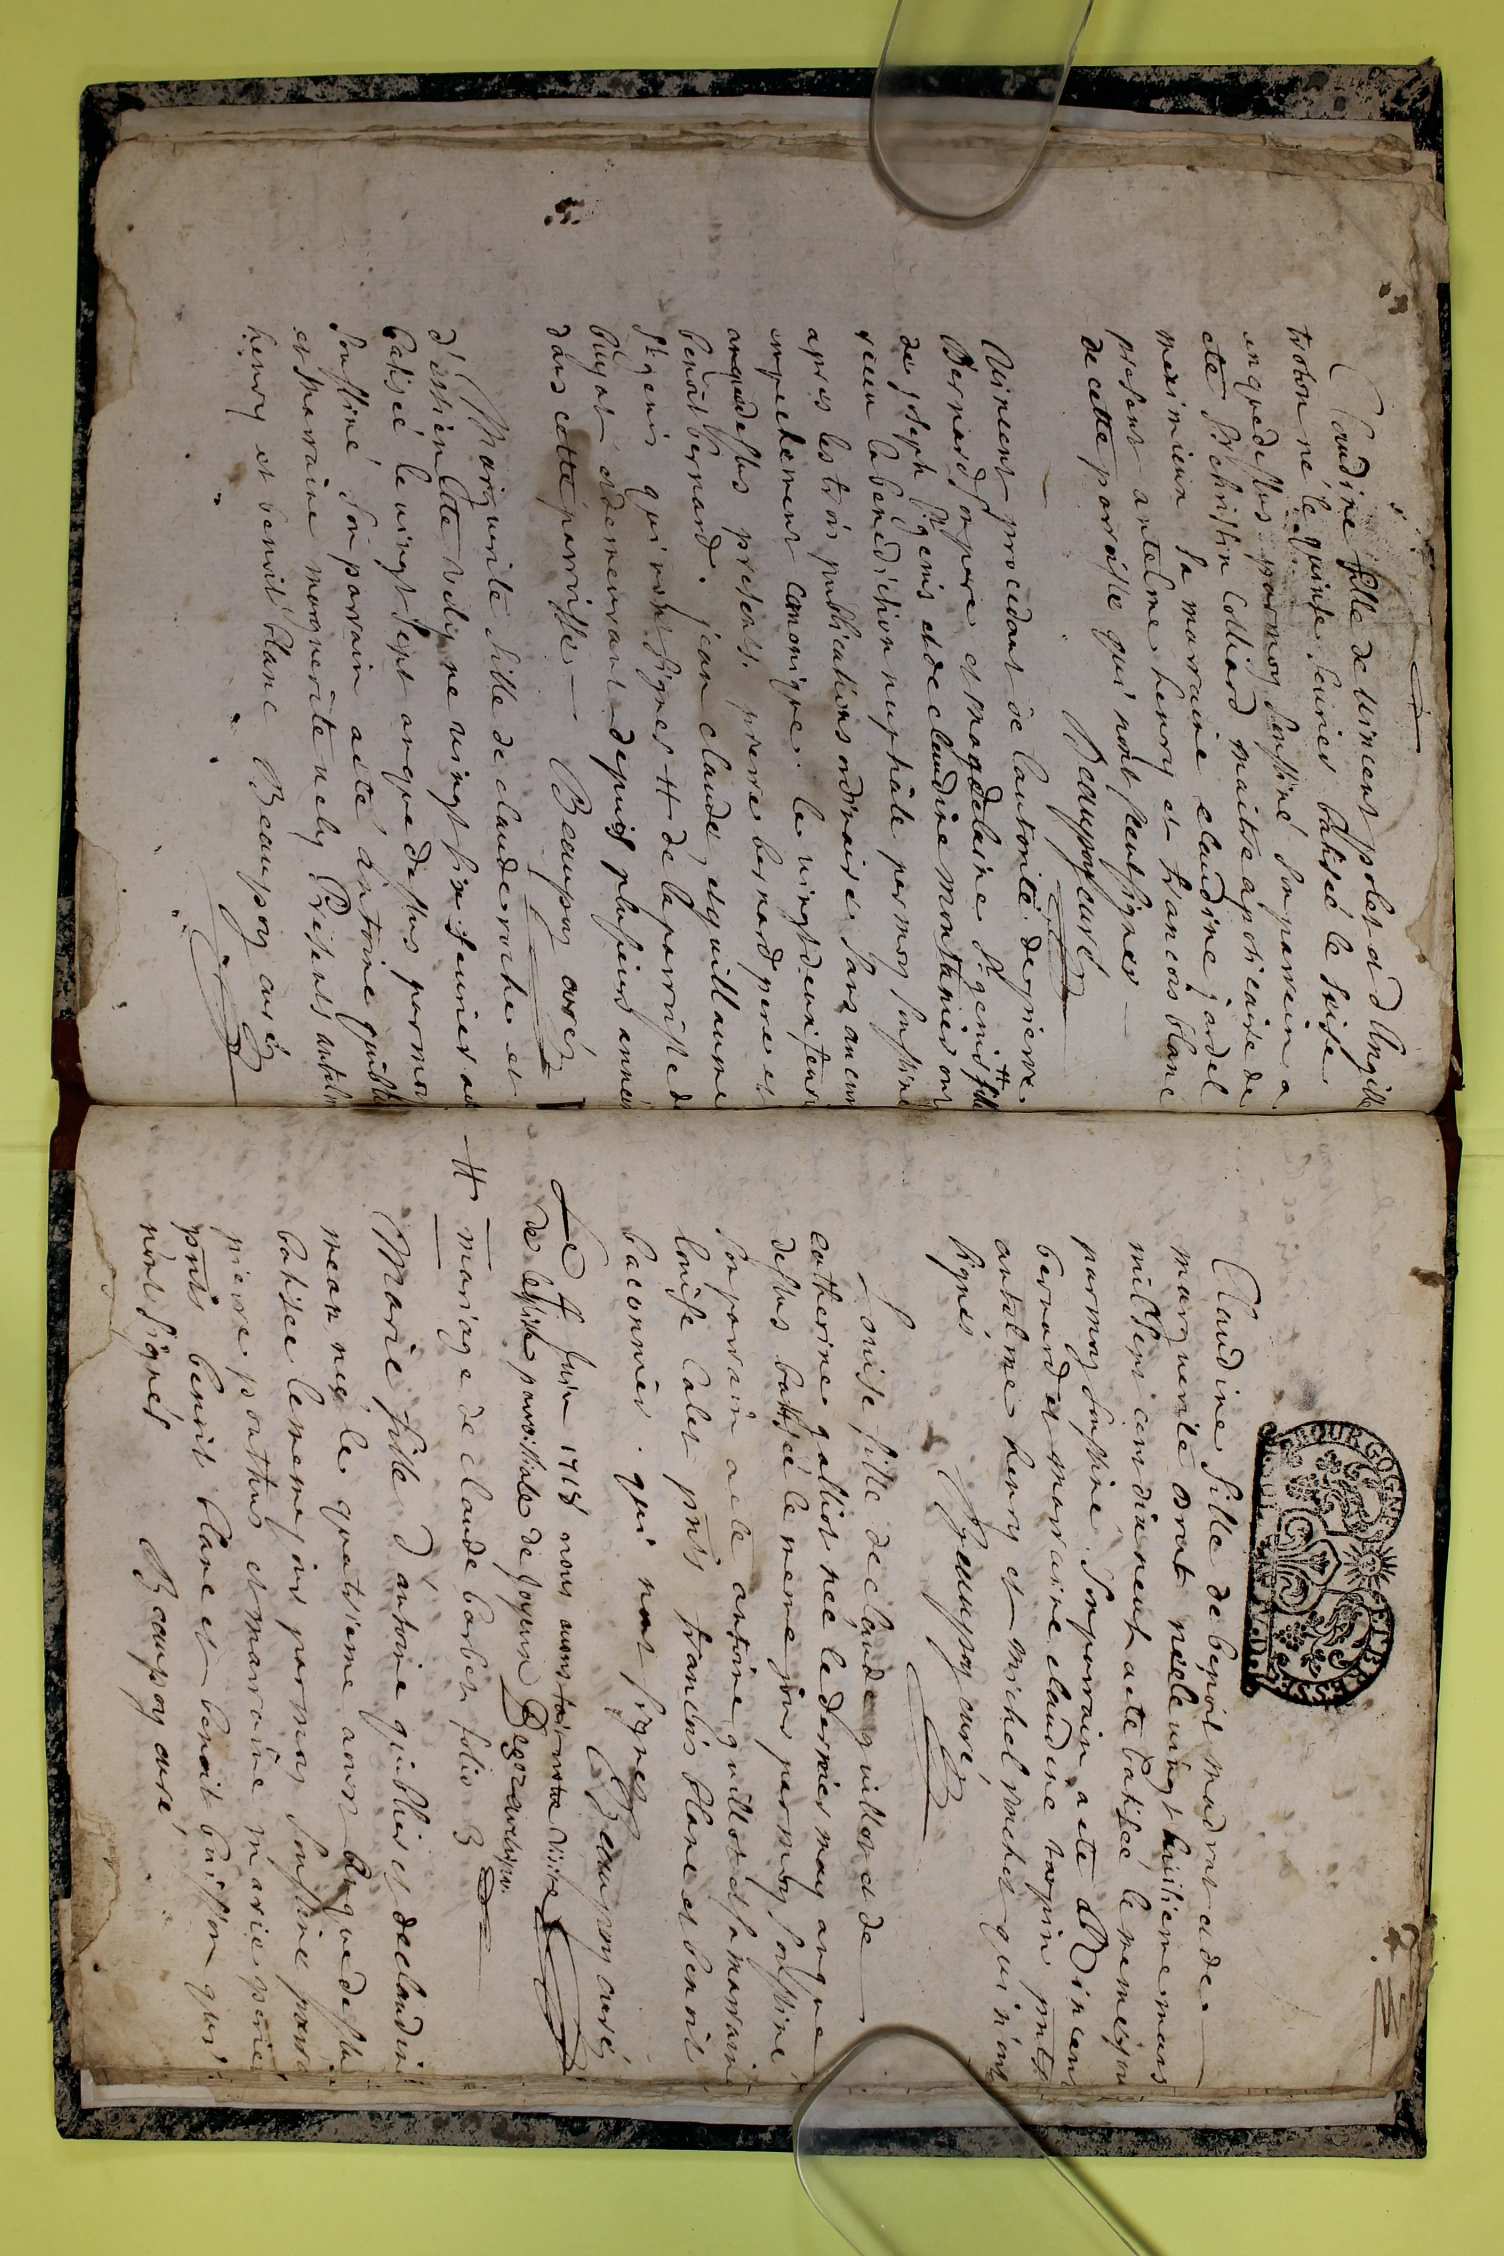 Claudine fille de vincent polet et d Ungille
trotton né le quinse feurier batisé le seise
an que dessus par moy soussiné son parein a
ete Sr christin Colliard maitre apoticaire de
meximieux sa maraine claudine jardel
présent antelme henry et francois blanc
de cette paroisse qui nont sceut signer
Beaupoy curé
vinsent procedant de lautorité de pierre
Bernard son pere et magdelaine St genis # fille
de joseph St genis et de claudine montanier ont
receu la benediction nuptiale par moy soussiné
apres les trois publications ordinaires sans aucun
enpechement canonique le vingt deux feuri
an que dessus présents pierre bernard pere et
benoit bernard jean claude, et guillaume
St genis qui nont signes # de la parroisse de
et demeurant depuis plusieurs années
dans cette parroisse Beaupoy curé
Marguerite fille de claude roche et
d'estiennete née vingt sixm feurier et
batisé le vingt sept an que dessus par moy
soussiné son parain a eté antoine guiblie
et marraine marguerite uely Présents antelm
henry et benoit blanc Beaupoy curé
BOURGOGNE ET BRESSE
Claudine fille de benoit mudrut et de
marguerite orset née le vingt huitieme mars
mil sept cent dix neuf a ete batisée le meme jour
par moy soussiné son parrain a ete Vincent
bernard et marraine claudine tarpin pnts
antelme henry et michel pochet qui n'ont
signés Beaupoy curé
Louise fille de claude guillot et de
catherine galliot née le dernier may an que
dessus batisée le meme jour par moy soussiné
son parain a ete antoine guillot et sa marraine
louise calet pnts francois blanc et benoit
baconnier qui nont signes Beaupoy curé
Le 4 Juin 1718 nous auons fait notre visite
de leglise parroissiale de Joyeux
# mariage de claude barbet folio 3
Marie fille d'antoine guiblier et de claudine
mean née le quatrieme aoust an que dessu
batisée le meme jour par moy soussiné parra
pierre potthus et marraine marie perrie
pnts benoit blanc et benoit buisson qui
nont signés Beaupoy curé